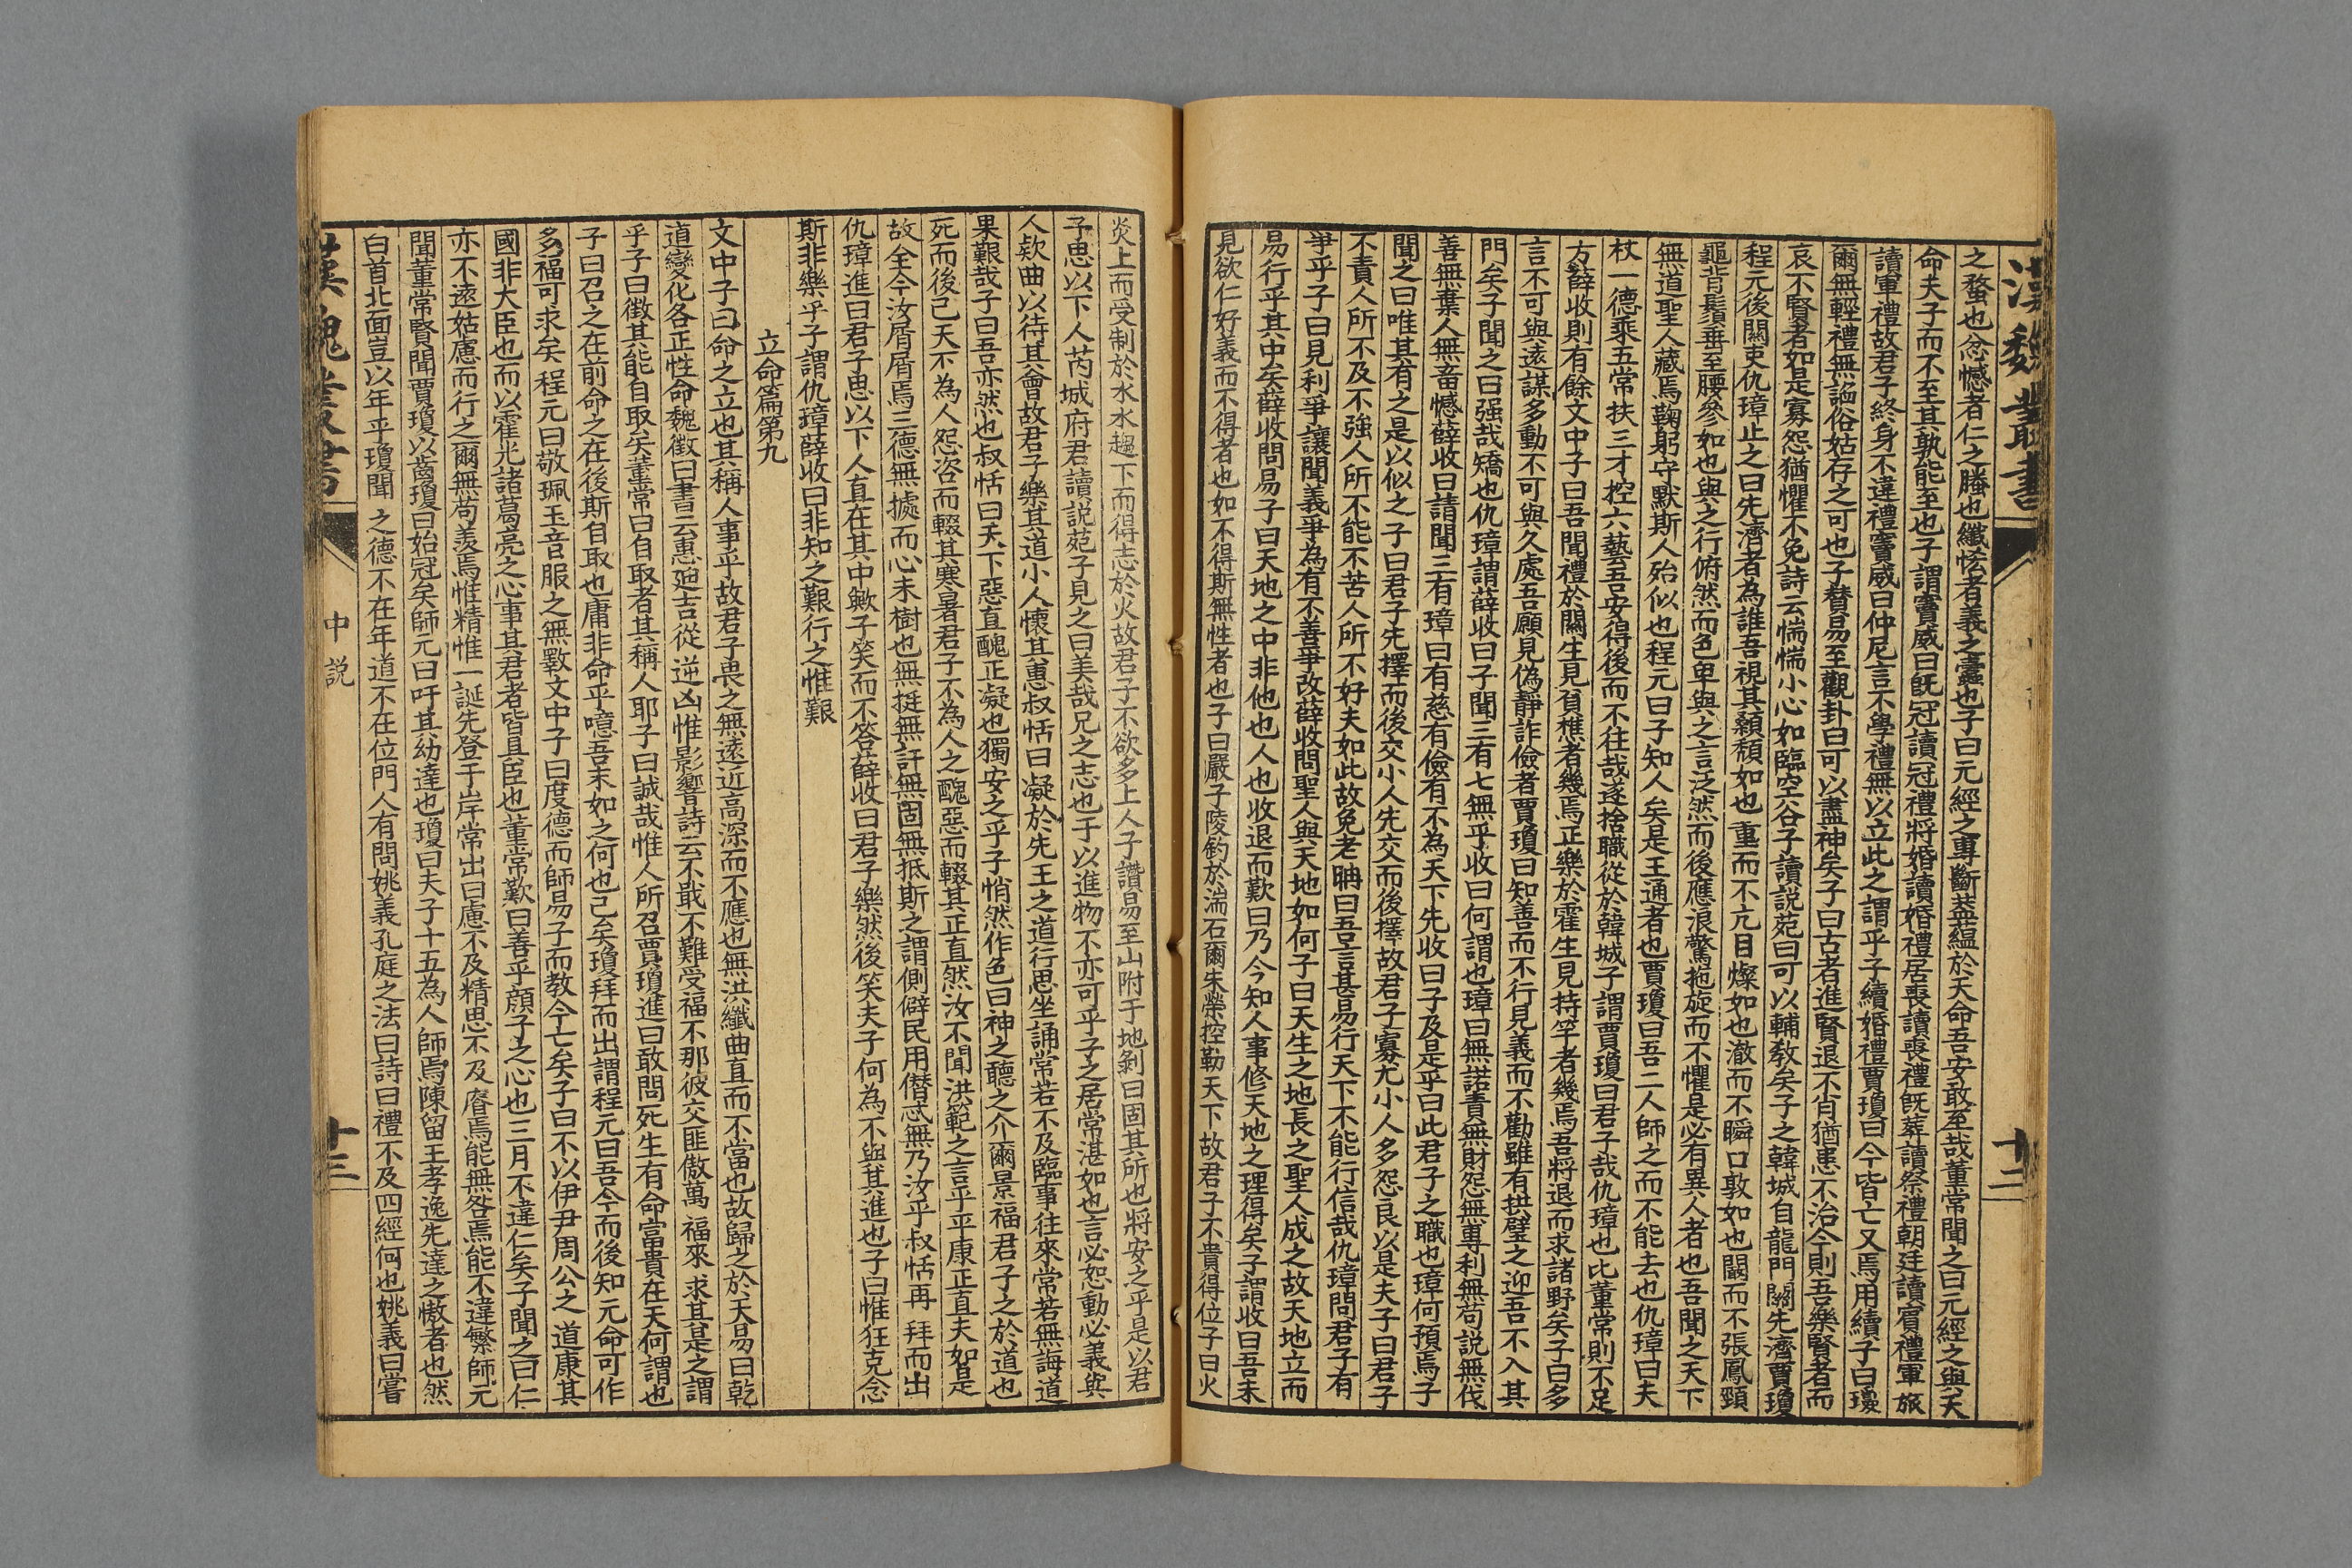 漢魏叢書
十二
之蝥也忿憾者仁之螣也纖恡者義之蠹也子曰元經之專斷蓋蘊於天命吾安敢至哉董常聞之曰元經之與天
命夫子而不至其孰能至也子謂竇威曰既冠讀冠禮將婚讀婚禮居喪讀喪禮既葬讀祭禮朝廷讀賓禮軍旅
讀軍禮故君子終身不違禮竇威曰仲尼言不學禮無以立此之謂乎子續婚禮賈瓊曰今皆亡又焉用續子曰瓊
爾無輕禮無諂俗姑存之可也子賛易至觀卦曰可以盡神矣子曰古者進賢退不肖猶患不治今則吾樂賢者而
哀不賢者如是寡怨猶懼不免詩云惴惴小心如臨空谷子讀説苑曰可以輔教矣子之韓城自龍門關先濟賈瓊
程元後關吏仇璋止之曰先濟者為誰吾視其顙頹如也重而不亢目燦如也澈而不瞬口敦如也闢而不張鳳頸
龜背鬚垂至腰參如也與之行俯然而色卑與之言泛然而後應浪驚拖旋而不懼是必有異人者也吾聞之天下
無道聖人藏焉鞠躬守默斯人殆似也程元曰子知人矣是王通者也賈瓊曰吾二人師之而不能去也仇璋曰夫
杖一德乘五常扶三才控六藝吾安得後而不往哉遂捨職從於韓城子謂賈瓊曰君子哉仇璋也比董常則不足
方薛收則有餘文中子曰吾聞禮於關生見負樵者幾焉正樂於霍生見持竿者幾焉吾將退而求諸野矣子曰多
言不可與遠謀多動不可與久處吾願見偽靜詐儉者賈瓊曰知善而不行見義而不勸雖有拱璧之迎吾不入其
門矣子聞之曰强哉矯也仇璋謂薛收曰子聞三有七無乎收曰何謂也璋曰無諾責無財怨無專利無苟説無伐
善無棄人無畜憾薛收曰請聞三有璋曰有慈有儉有不為天下先收曰子及是乎曰此君子之職也璋何預焉子
聞之曰唯其有之是以似之子曰君子先擇而後交小人先交而後擇故君子寡尤小人多怨良以是夫子曰君子
不責人所不及不強人所不能不苦人所不好夫如此故免老聃曰吾言甚易行天下不能行信哉仇璋問君子有
爭乎子曰見利爭讓聞義爭為有不善爭改薛收問聖人與天地如何子曰天生之地長之聖人成之故天地立而
易行乎其中矣薛收問易子曰天地之中非他也人也收退而歎曰乃今知人事修天地之理得矣子謂收曰吾未
見欲仁好義而不得者也如不得斯無性者也子曰嚴子陵釣於湍石爾朱榮控勒天下故君子不貴得位子曰火
炎上而受制於水水趨下而得志於火故君子不欲多上人子讚易至山附于地剝曰固其所也將安之乎是以君
子思以下人芮城府君讀説苑子見之曰美哉兄之志也于以進物不亦可乎子之居常湛如也言必恕動必義與
人欵曲以待其會故君子樂其道小人懷其惠叔恬曰凝於先王之道行思坐誦常若不及臨事往來常若無誨道
果艱哉子曰吾亦然也叔恬曰天下惡直醜正凝也獨安之乎子悄然作色曰神之聽之介爾景福君子之於道也
死而後已天不為人怨咨而輟其寒暑君子不為人之醜惡而輟其正直然汝不聞洪範之言乎平康正直夫如是
故全今汝屑屑焉三德無據而心未樹也無挺無訐無固無抵斯之謂側僻民用僭忒無乃汝乎叔恬再拜而出
仇璋進曰君子思以下人直在其中歟子笑而不答薛收曰君子樂然後笑夫子何為不與其進也子曰惟狂克念
斯非樂乎子謂仇璋薛收曰非知之艱行之惟艱
立命篇第九
文中子曰命之立也其稱人事乎故君子畏之無遠近高深而不應也無洪纖曲直而不當也故歸之於天易曰乾
道變化各正性命魏徵曰書云惠廸吉從逆凶惟影響詩云不戢不難受福不那彼交匪傲萬福來求其是之謂
乎子曰徵其能自取矣董常曰自取者其稱人耶子曰誠哉惟人所召賈瓊進曰敢問死生有命富貴在天何謂也
子曰召之在前命之在後斯自取也庸非命乎噫吾未如之何也已矣瓊拜而出謂程元曰吾今而後知元命可作
多福可求矣程元曰敬珮玉音服之無斁文中子曰度德而師易子而教今亡矣子曰不以伊尹周公之道康其
國非大臣也而以霍光諸葛亮之心事其君者皆具臣也董常歎曰善乎顔子之心也三月不違仁矣子聞之曰仁
亦不遠姑慮而行之爾無苟羡焉惟精惟一誕先登于岸常出曰慮不及精思不及睿焉能無咎焉能不違繁師元
聞董常賢聞賈瓊以齒瓊曰始冠矣師元曰吁其幼達也瓊曰夫子十五為人師焉陳留王孝逸先達之慠者也然
白首北面豈以年乎瓊聞之德不在年道不在位門人有問姚義孔庭之法曰詩曰禮不及四經何也姚義曰嘗
漢魏叢書
中説
十三